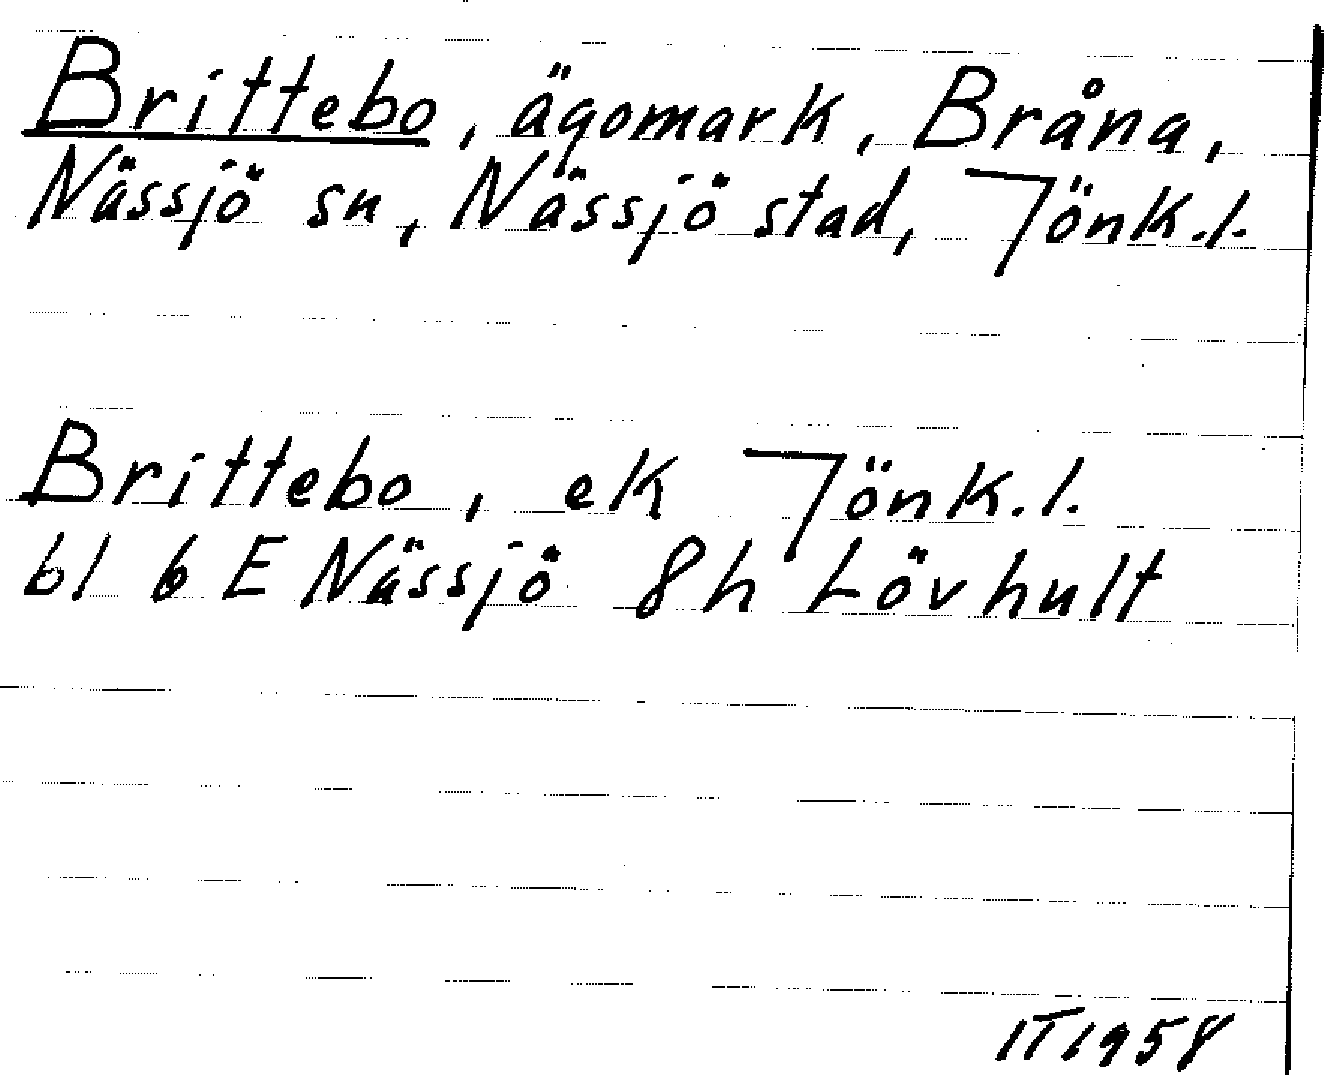 Brittebo, ägomark, Bråna,
Nässjö sn, Nässjö stad, Jönk.l.
Brittebo, ek Jönk.l.
bl 6 E Nässjö 8h Lövhult
IT 1958